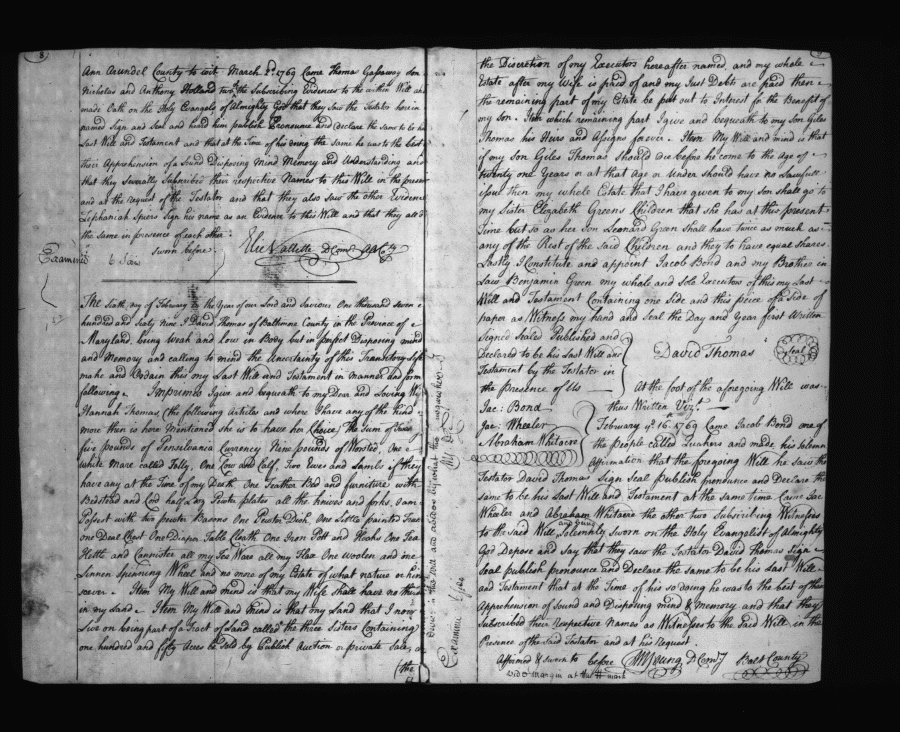 8
Ann Arundel County to wit March 2d. 1769 Came Thomas Gassaway son
Nicholas and Anthony Holland two the Subscribing Evidences to the within Will and
made Oath on the Holy Evangels of Almighty God that they Saw the Testator herein
named Sign and Seal and heard him publish Pronounce and Declare the same to be his
Last Will and Testament and that at the Time of his doing the same he was to the best
their Apprehension of a Sound Disposing Mind Memory and Understanding and
that they Severally Subscribed their respective Names to this Will in the presence
and at the request of the Testator and that they also saw the other Evidence
Zephaniah Spiers Sign his name as an Evidence to this Will and that they all did
the same in presence of each other
Sworn before Elie Vallette D Comy A A Coty
Examined
6 Sides
The Sixth day of February in the Year of our Lord and Saviour One thousand seven
hundred and Sixty nine I David Thomas of Baltimore County in the Province of
Maryland, being weak and low in Body but in perfect Disposing mind
and Memory and calling to mind the Uncertainty of this Transitory Life
make and Ordain this my Last Will and Testament in Manner and form
following Imprimis I give and bequeath to my Dear and Loving Wife
Hannah Thomas the following Articles and where I have any of the kind
more then is here Mentioned She is to have her Choice, The Sum of Twenty
five pounds of Pensilvania Currency Nine pounds of Worsted, One
white Mare called Jolly, One Cow and Calf, Two Ewes and Lambs if they
have any at the Time of my Death One Feather Bed and furniture with
Bedstead and Cord half a doz Pewter plates all the knives and forks I am
Possest with two pewter Basons One Pewter Dish, One Little painted Trunk
one Deal Chest One Diaper Table Cloath One Iron Pott and Hooks One Tea
Kettle and Cannister all my Tea Ware all my Flax One woolen and one
Linnen Spinning Wheel and no more of my Estate of what nature or kind
soever Item My Will and mind is that my Wife shall have no thirds
in my Land Item My Will and mind is that my Land that I now
Live on being part of a Tract of Land called the three Sisters Containing
one hundred and fifty Acres be Sold by Publick Auction or private Sale, at
(the
Examined 6 Sides
the Discretion of my Executors hereafter named, and my whole
Estate after my Wife is paid of and my Just Debts are paid then
the remaining part of my Estate be put out to Interest for the Benefit of
my son. Item which remaining part I give and bequeath to my Son Giles
Thomas his Heirs and Assigns forever. Item My Will and mind is that
if my Son Giles Thomas should die before he come to the age of
twenty one Years or at that age or under should have no Lawfull
issue then my whole Estate that I have given to my son shall go to
my Sister Elizabeth Greens Children that she has at this present
Time but so as her Son Leonard Green shall have twice as much as
any of the Rest of the Said Children and they to have equal shares
Lastly I Constitute and appoint Jacob Bond and my Brother in
Law Benjamin Green my whole and Sole Executors of this my Last
Will and Testament Containing one side and this piece of a Side of
paper as Witness my hand and Seal the Day and Year first Written
Signed Sealed Published and
Declared to be his Last Will and
Testament by the Testator in
the Presence of Us
David Thomas Seal
Jac: Bond
Jac: Wheeler
Abraham Whitaire
At the foot of the aforegoing Will was
thus Written Vizt.
February ye. 16th. 1769 Came Jacob Bond one of
the people called Quakers and made his Solemn
Affirmation that the foregoing Will he saw the
Testator David Thomas Sign Seal publish pronounce and Declare the
same to be his Last Will and Testament at the same time Came Jac
Wheeler and Abraham Whitaire the other two Subscribing Witnesses
to the Said Will and being Solemnly sworn on the Holy Evangelist of Almighty
God Depose and Say that they saw the Testator David Thomas Sign
Seal publish pronounce and Declare the same to be his Last Will
and Testament that at the Time of his so doing he was to the best of their
Apprehension of Sound and Disposing mind & Memory and that they
Subscribed their respective Names as Witnesses to the Said Will in the
Presence of the Said Testator and at his Request.
Affirmed & sworn to before Wm Young D Comy Balt County
Vide Margin at this # mark